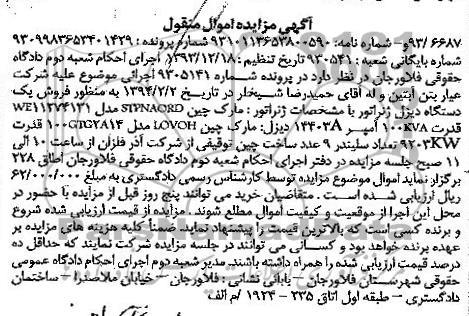 آگهی مزایده اموال منقول
۹۳/۶۶۸۷و– شماره نامه: ۹۳۱۰۱۱۳۶۵۳۸۰۰۵۹۰ شماره پرونده : ۹۳۰۹۹۸۳۶۵۳۴۰۱۴۲۹
شماره بایگانی شعبه : ۹۳۰۵۴۱ تاریخ تنظیم : ۱۳۹۳/۱۲/۱۸ اجرای احکام شعبه دوم دادگاه
حقوقی فلاورجان در نظر دارد در پرونده شماره ۹۳۰۵۱۴۱ اجرائی موضوع علیه شرکت
عیار بتن آبتین و له آقای حمیدرضا شیخلر در تاریخ ۱۳۹۴/۲/۲ به منظور فروش یک
دستگاه دیزل ژنراتور با مشخصات ژنراتور : مارک چین STPNAORD مدل WE11۲۷۴۱۳۱
قدرت ۱۰۰KVA آمپر ۱۴۴۰۳۸ دیزل: مارک چین LOVOH مدل ۱۰۰GTG۲۸۱۴ قدرت
۹۲۰۳KW تعداد سلیندر ۹ عدد ساخت چین توقیفی از شرکت آذر فلزان از ساعت ۱۰ الی
۱۱ صبح جلسه مزایده در دفتر اجرای احکام شعبه دوم دادگاه حقوقی فلاورجان اطاق ۲۲۸
برگزار نماید اموال موضوع مزایده توسط کارشناس رسمی دادگستری به مبلغ ۶۲/۰۰۰/۰۰۰
ریال ارزیابی شده است . متقاضیان خرید می توانند پنج روز قبل از مزایده با حضور در
محل این اجرا از موقعیت و کیفیت اموال مطلع شوند . مزایده از قیمت ارزیابی شده شروع
و برنده کسی است که بالاترین قیمت را پیشنهاد نماید. ضمناً کلیه هزینه های مزایده بر
عهده برنده خواهد بود و کسانی می توانند در جلسه مزایده شرکت نمایند که حداقل ده
درصد قیمت ارزیابی شده را همراه داشته باشند. مدیر شعبه دوم اجرای احکام دادگاه عمومی
حقوقی شهرستان فلاورجان – نشانی : فلاورجان – خیابان ملاصدرا – ساختمان
دادگستری – طبقه اول اتاق ۲۳۵ – ۱۹۲۴ /م الف